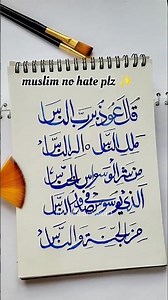 muslim no hate plz ✨
قل أعوذ برب الناس
ملك الناس ٥ إله الناس
من شر الوسواس الخناس
الذي يوسوس في صدور الناس
من الجنة والناس